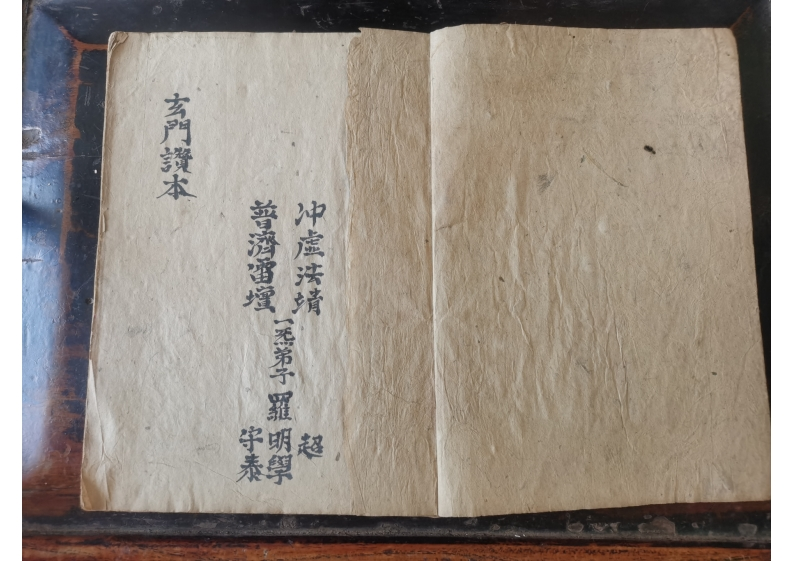 冲虛法靖
普濟雷壇
一炁弟子羅
超
明學
守泰
玄門讚本